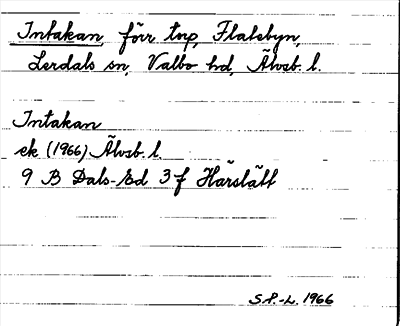 Intakan, förr torp, Flatebyn,
Lerdals sn, Valbo hd, Älvsb. l.
Intakan
ek (1966) Älvsb. l.
9 B Dals-Ed 3 f Härslätt
S.P.-L. 1966